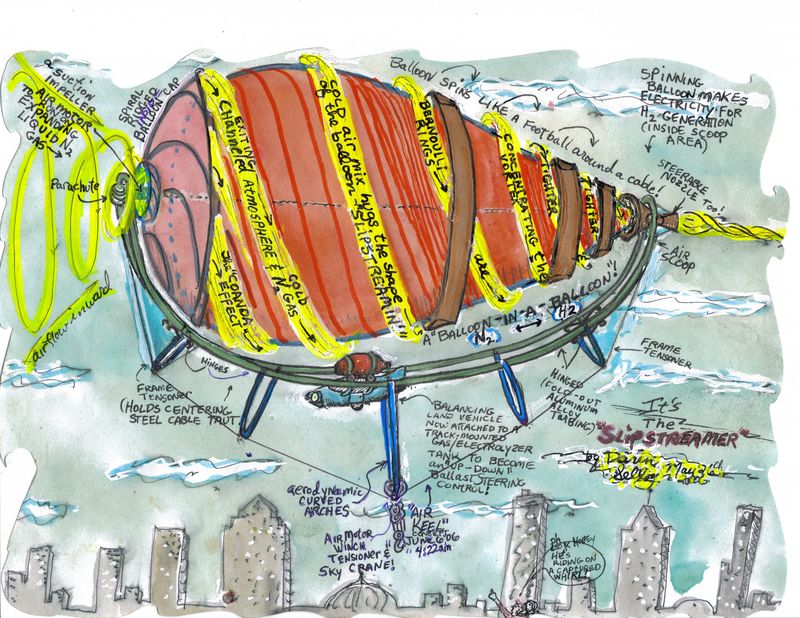 a suction
impeller
AIR MOTOR
TO
EXPANDING
LIQUID N2
GAS
SPIRAL
BALLOON CAP
Parachute
airflow inward
EXITING
Channeled ATMOSPHERE & N2 GAS
"COANDA"
EFFECT
COLD
COLD air mix hugs the shape
of the balloon "SLIPSTREAMIN!"
BERNOULLI
RINGS
are
CONCENTRATING the
VORTEX
TIGHTER
TIGHTER
Balloon spins like a football around a cable!
SPINNING
BALLOON MAKES
ELECTRICITY FOR
H2 GENERATION
(INSIDE SCOOP
AREA)
STEERABLE
NOZZLE TOO!
AIR
SCOOP
A "BALLOON-IN-A-BALLOON!"
N2 H2
HINGES
FRAME
TENSIONER
(HOLDS CENTERING
STEEL CABLE TAUT)
HINGED
(FOLD-OUT
ALUMINUM
ALLOY
TUBING)
FRAME
TENSIONER
BALANCING
LAND VEHICLE
NOW ATTACHED TO A
TRACK-MOUNTED
GAS/ELECTROLYZER
TANK TO BECOME
an "UP-DOWN"
Ballast STEERING
CONTROL!
aerodynamic
CURVED
ARCHES
"AIR
KEEL"
CONCEPT
JUNE 6 '06
4:22am
AIR MOTOR
WINCH
TENSIONER &
SKY CRANE!
It's
The
"SLIPSTREAMER"
HE'S
RIDING ON
A CAPTURED
WHIRL!